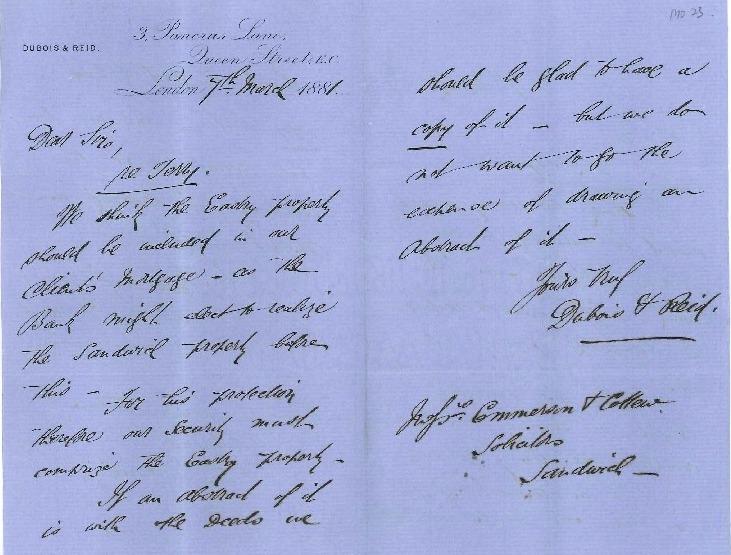 MO 23.
DUBOIS & REID.
3, Pancras Lane,
Queen Street E.C.
London 7th March 1881.
Dear Sirs,
re Terry.
We think the Eastry property
should be included in our
Client's Mortgage - as the
Bank might elect to realize
the Sandwich property before
this - For his protection
therefore our Security must
comprize the Eastry property -
If an abstract of it
is with the Deeds we
should be glad to have a
copy of it - but we do
not want to go the
expense of drawing an
Abstract of it -
Yours truly
Dubois & Reid.
Messrs. Emmerson &
Solicitors
Sandwich -